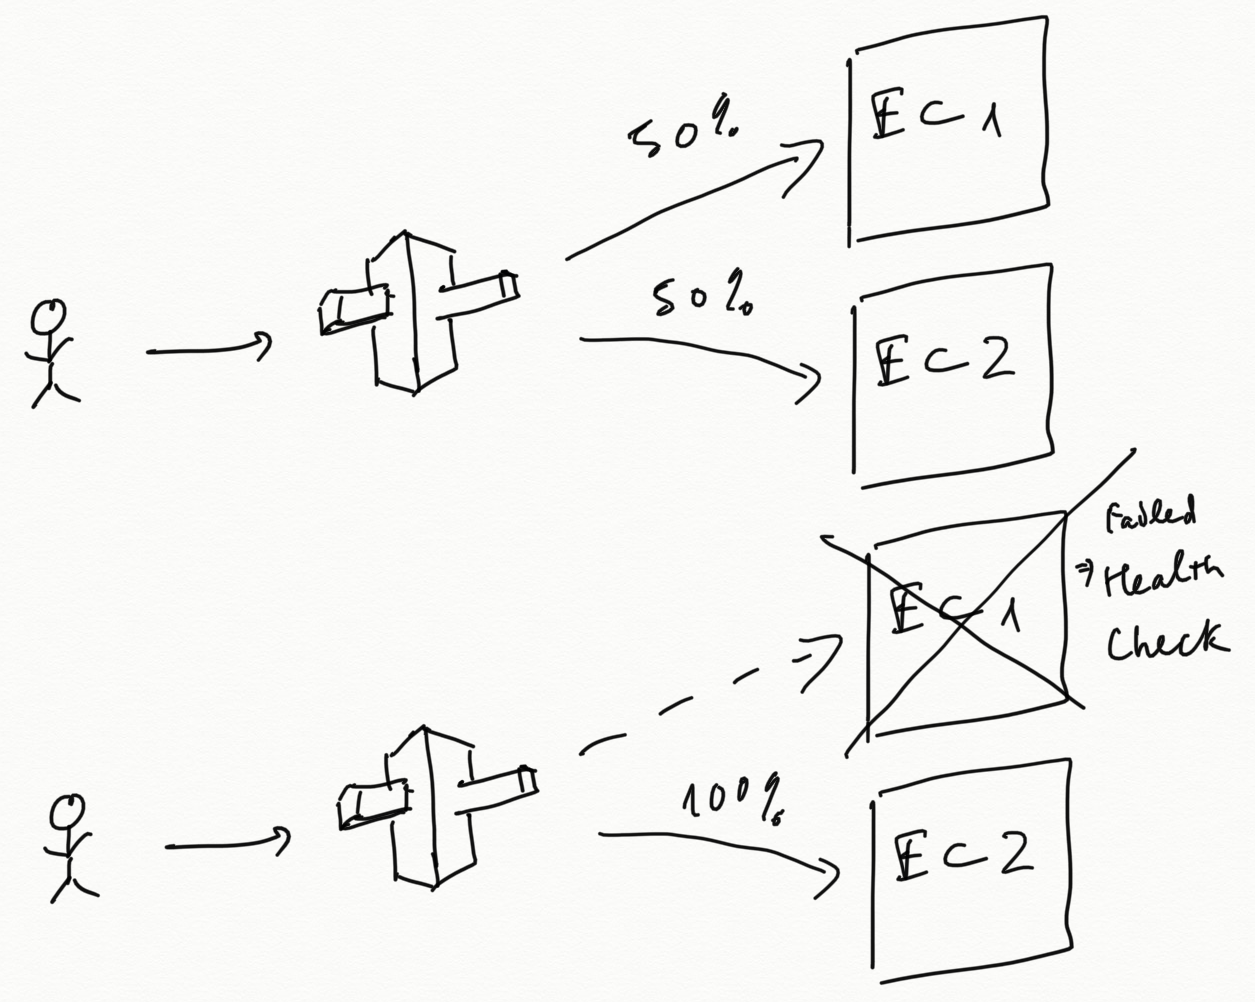 50%
EC1
50%
EC2
EC1
Failed
⇒ Health
Check
100%
EC2